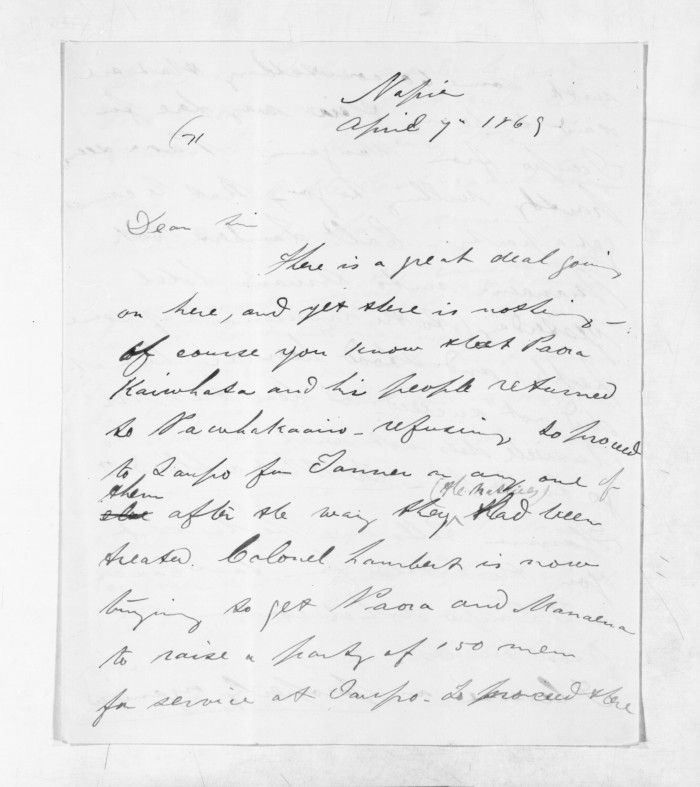 Napier
April 7th 1869
Dear Sir
There is a great deal going
on here, and yet there is nothing -
of course you know that Paora
Kaiwhata and his people returned
to Pawhakaairo - refusing to proceed
to Taupo for Tanner or any one of
them
after the way they (the Natives) had been
treated. Colonel Lambert is now
trying to get Paora and Manaena
to raise a party of 150 men
for service at Taupo - to proceed there